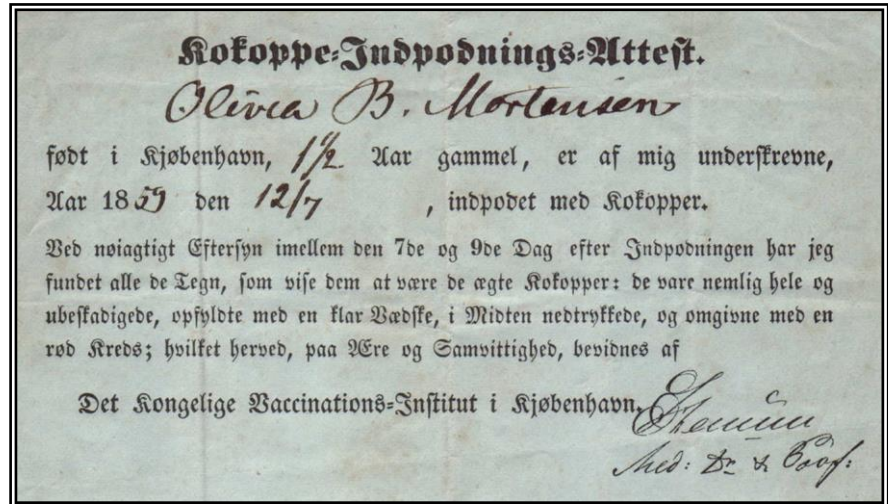 Kokoppe-Indpodnings-Attest.
Olivia B. Mortensen
født i Kjøbenhavn, 1½ Aar gammel, er af mig underskrevne,
Aar 1859 den 12/7 , indpodet med Kokopper.
Ved nøiagtigt Eftersyn imellem den 7de og 9de Dag efter Indpodningen har jeg
fundet alle de Tegn, som vise dem at være de ægte Kokopper: de vare nemlig hele og
ubeskadigede, opfyldte med en klar Vædske, i Midten nedtrykkede, og omgivne med en
rød Kreds; hvilket herved, paa Ære og Samvittighed, bevidnes af
Det Kongelige Vaccinations-Institut i Kjøbenhavn.
Med: Dr & Prof: